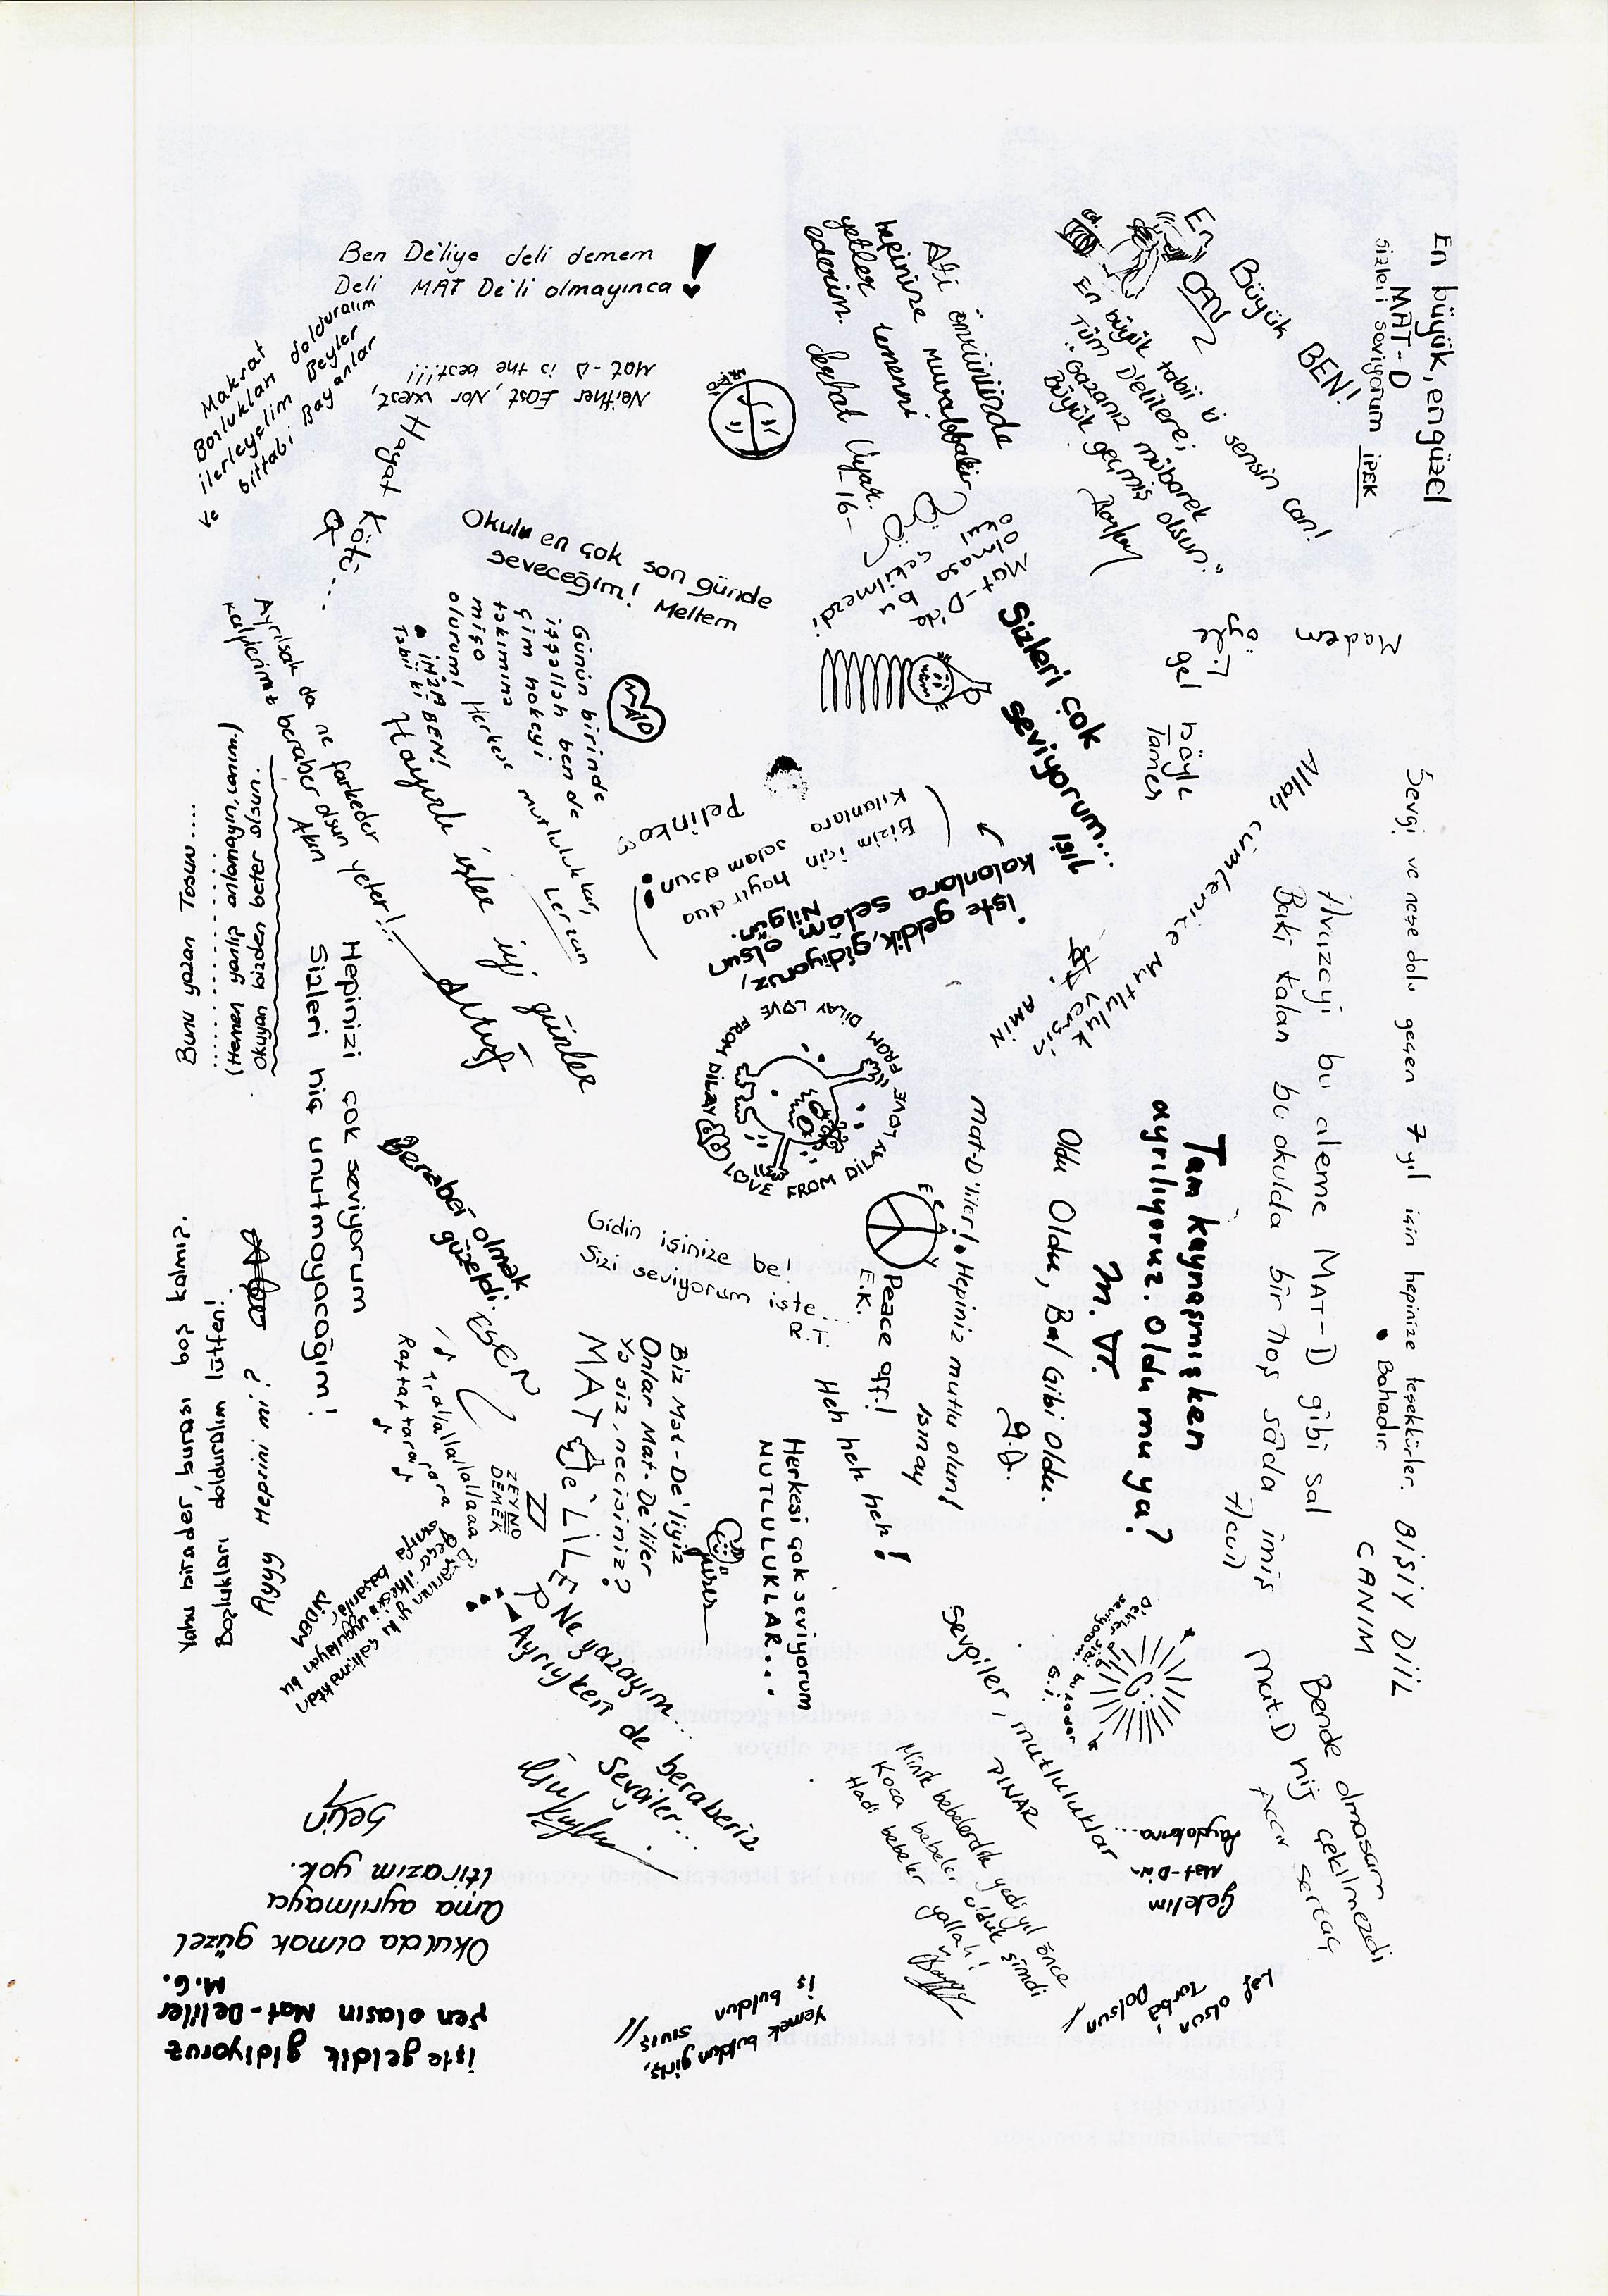 En büyük, en güzel
MAT-D
sizleri seviyorum
İPEK
Ben De'liye deli demem
Deli MAT De'li olmayınca !
Neither East, Nor West,
Mat-D is the best!!!
Maksat
Boşlukları dolduralım
ilerleyelim Beyler
ve bittabi Bayanlar
Hayat kötü....
Okulu en çok son günde
seveceğim! Meltem
Ati ömrünüzde
hepinize muvaffaki-
yetler temenni
ederim. Serhat Uyar.
-16-
En
Büyük BEN!
CAN
En büyük tabii ki sensin can!
Tüm D'elilere;
"Gazanız mübarek
Büyük geçmiş olsun."
Mat-D'de bu
okul
olmasa
çekilmezdi
Madem
öyle?
gel böyle
Tamer
Sizleri çok
seviyorum...
Işıl
Günün birinde
işşallah ben de
çim hokeyi
takımına
miço
olurum!
Herkese mutluluklar,
Lercan
İMZA
Tabii ki BEN!
MATD
Ayrılsak da ne farkeder
kalplerimiz beraber olsun yeter!!
Akın
Hayırlı işler iyi günler
Bizim için hayır dua
Kılanlara selam olsun!
Pelinko
işte geldik, gidiyoruz,
kalanlara selam olsun
Nilgün.
Allah cümlenize mutluluk
versin
AMİN
Sevgi ve neşe dolu geçen 7 yıl için hepinize teşekkürler.
Bahadır
BİŞİY DİİL
CANIM
Avazeyi bu aleme MAT-D gibi sal
Baki kalan bu okulda bir hoş sâda imiş
Tam kaynaşmışken
ayrılıyoruz. Oldu mu ya?
Oldu Oldu, Bal Gibi Oldu.
Mat-D'liler! Hepiniz mutlu olun!
ısmay
LOVE FROM DİLAY LOVE FROM DİLAY LOVE FROM DİLAY
Peace off!
E.K.
Heh heh heh!
Bunu yazan Tosun....
(Hemen yanlış anlamayın, canım.)
Okuyan bizden beter olsun.
Hepinizi çok seviyorum
Sizleri hiç unutmayacağım!
Beraber olmak
güzeldi.
ESEN
Gidin işinize be!
Sizi seviyorum işte...
R.T.
Biz Mat-De'liyiz
Onlar Mat-De'liler
Ya siz, necisiniz?
MAT De'LİLER
Herkesi çok seviyorum
MUTLULUKLAR...
Yahu birader, burası boş kalmış.
Boşlukları dolduralım lütfen!
Ayyy Hepsini mi?
Trallallallallaaa
Rattattararara
ZEYNO
DEMEK
Ne yazayım...
Ayrıyken de beraberiz
Sevgiler...
Sevgiler, mutluluklar
PINAR
Minik bebelerdik yedi yıl önce
Koca bebeler olduk şimdi
Hadi bebeler yallah!
Bende olmasam
Mat.D hiç çekilmezdi
sertaç
Gelelim
Mat-D'nin
faydalarına...
Laf olsun
Torba Dolsun
Yemek buldun giriş,
iş buldun sıvış
Okulda olmak güzel
ama ayrılmaya
itirazım yok.
Selin
işte geldik gidiyoruz
Şen olasın Mat-Deliler
M.G.